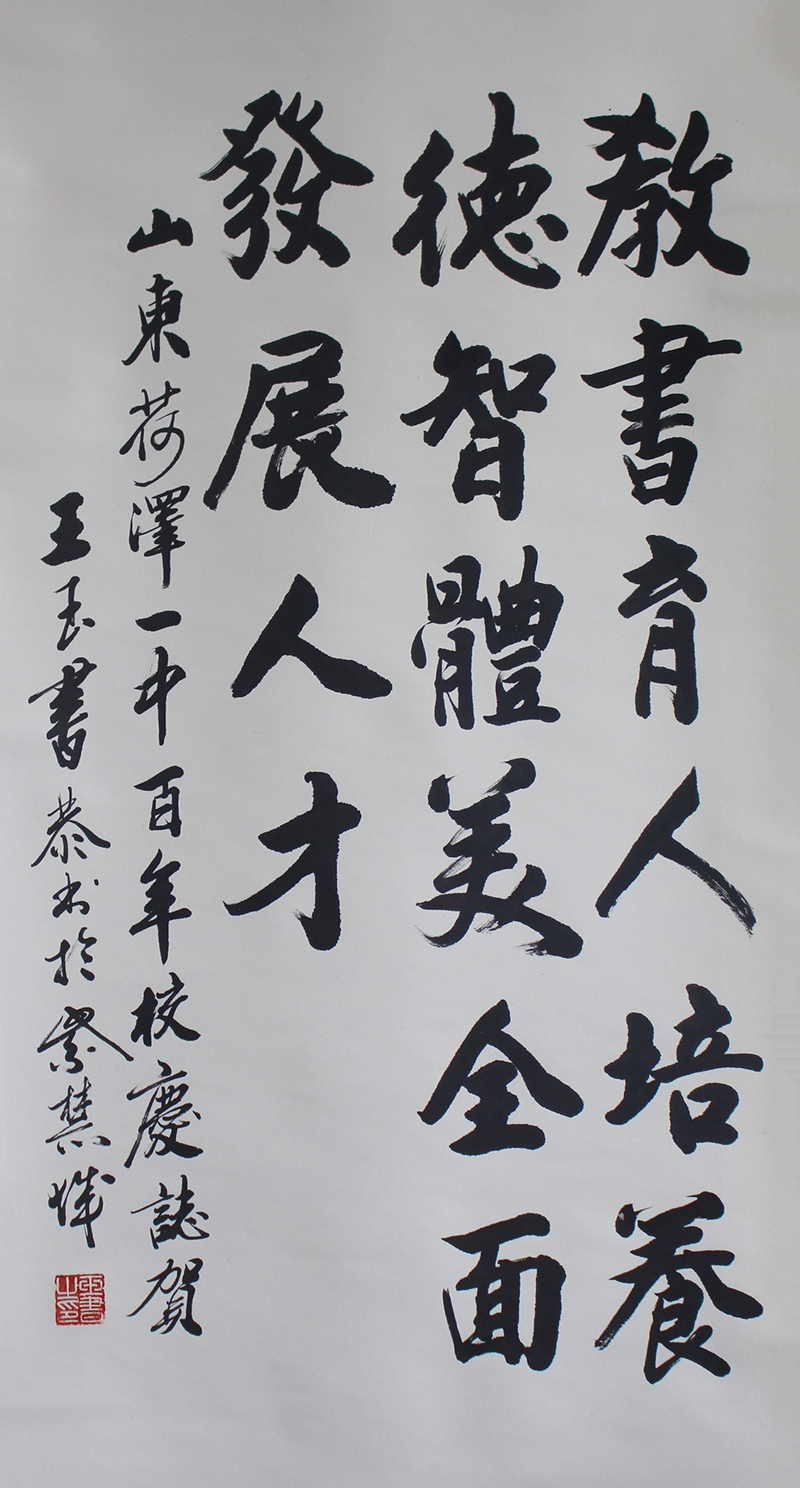 教書育人培養
德智體美全面
發展人才
山東菏澤一中百年校慶誌賀
王玉書恭书於
玉書之印